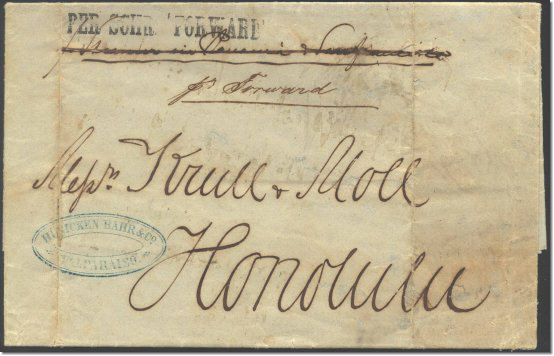 PER SCHR. 'FORWARD'
Steamer via Panama & San Francisco
pr Forward
Messrs Krull & Moll
Honolulu
HÜNICKEN BAHR & CO.
VALPARAISO